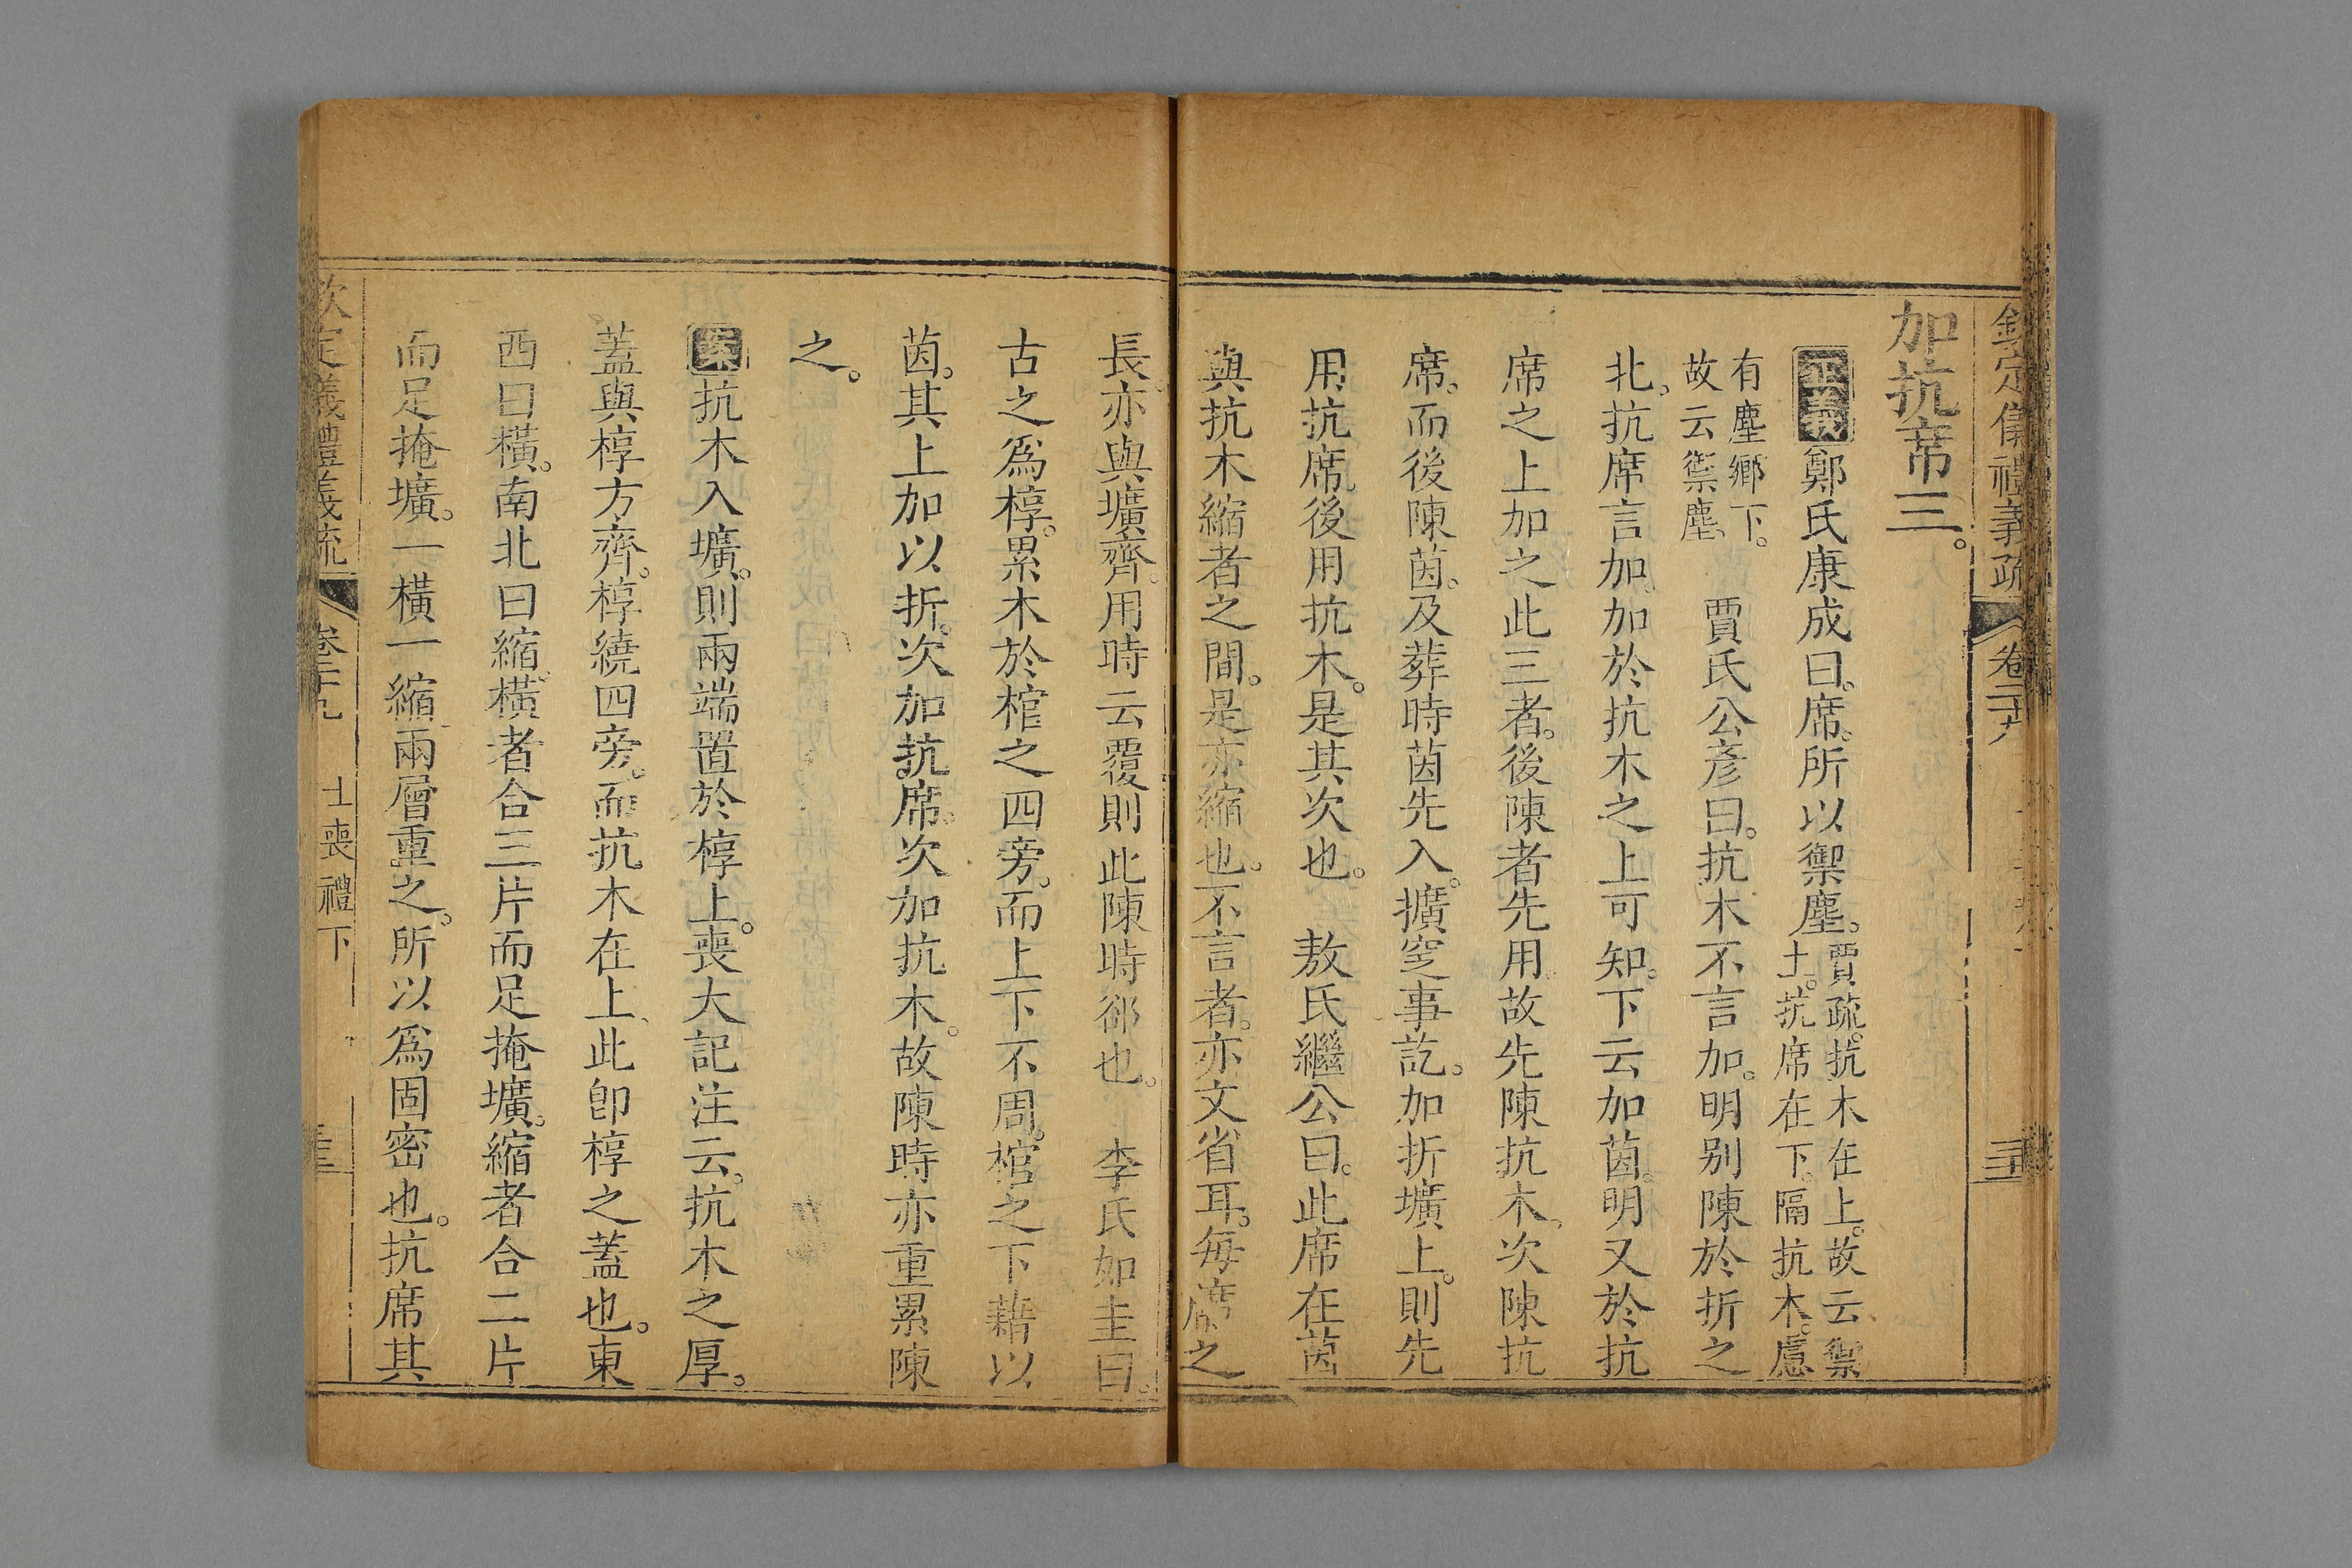 欽定儀禮義疏 卷二十九
加抗席三。
正義鄭氏康成曰。席。所以禦塵。賈疏。抗木在上。故云禦
土。抗席在下。隔抗木。慮
有塵鄉下。
故云禦塵。
賈氏公彥曰。抗木不言加。明别陳於折之
北。抗席言加。加於抗木之上可知。下云加茵。明又於抗
席之上加之此三者。後陳者先用。故先陳抗木。次陳抗
席。而後陳茵。及葬時茵先入。擴窆事訖。加折壙上。則先
用抗席。後用抗木。是其次也。 敖氏繼公曰。此席在茵
與抗木縮者之間。是亦縮也。不言者。亦文省耳。每席之
長。亦與壙齊。用時云覆則此陳時郤也。 李氏如圭曰。
古之爲椁。累木於棺之四旁。而上下不周。棺之下藉以
茵。其上加以折。次加抗席。次加抗木。故陳時亦重累陳
之。
案抗木入壙。則兩端置於椁上。喪大記注云。抗木之厚。
蓋與椁方齊。椁繞四旁。而抗木在上、此卽椁之蓋也。東
西曰橫。南北曰縮。橫者合三片而足掩壙。縮者合二片
而足掩壙。一橫一縮兩層重之。所以爲固密也。抗席其
欽定儀禮義疏 卷二十九 士喪禮下